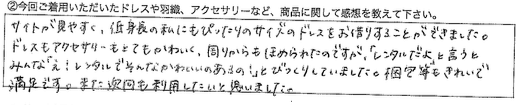 ②今回ご着用いただいたドレスや羽織、アクセサリーなど、商品に関して感想を教えて下さい。
サイトが見やすく、低身長の私にもぴったりのサイズのドレスをお借りすることができました。
ドレスもアクセサリーもとてもかわいく、周りからもほめられたのですが、「レンタルだよ」と言うと
みんな「え！レンタルでそんなかわいいのあるの！」とびっくりしていました。梱包等もきれいで
満足です。また次回も利用したいと思いました。